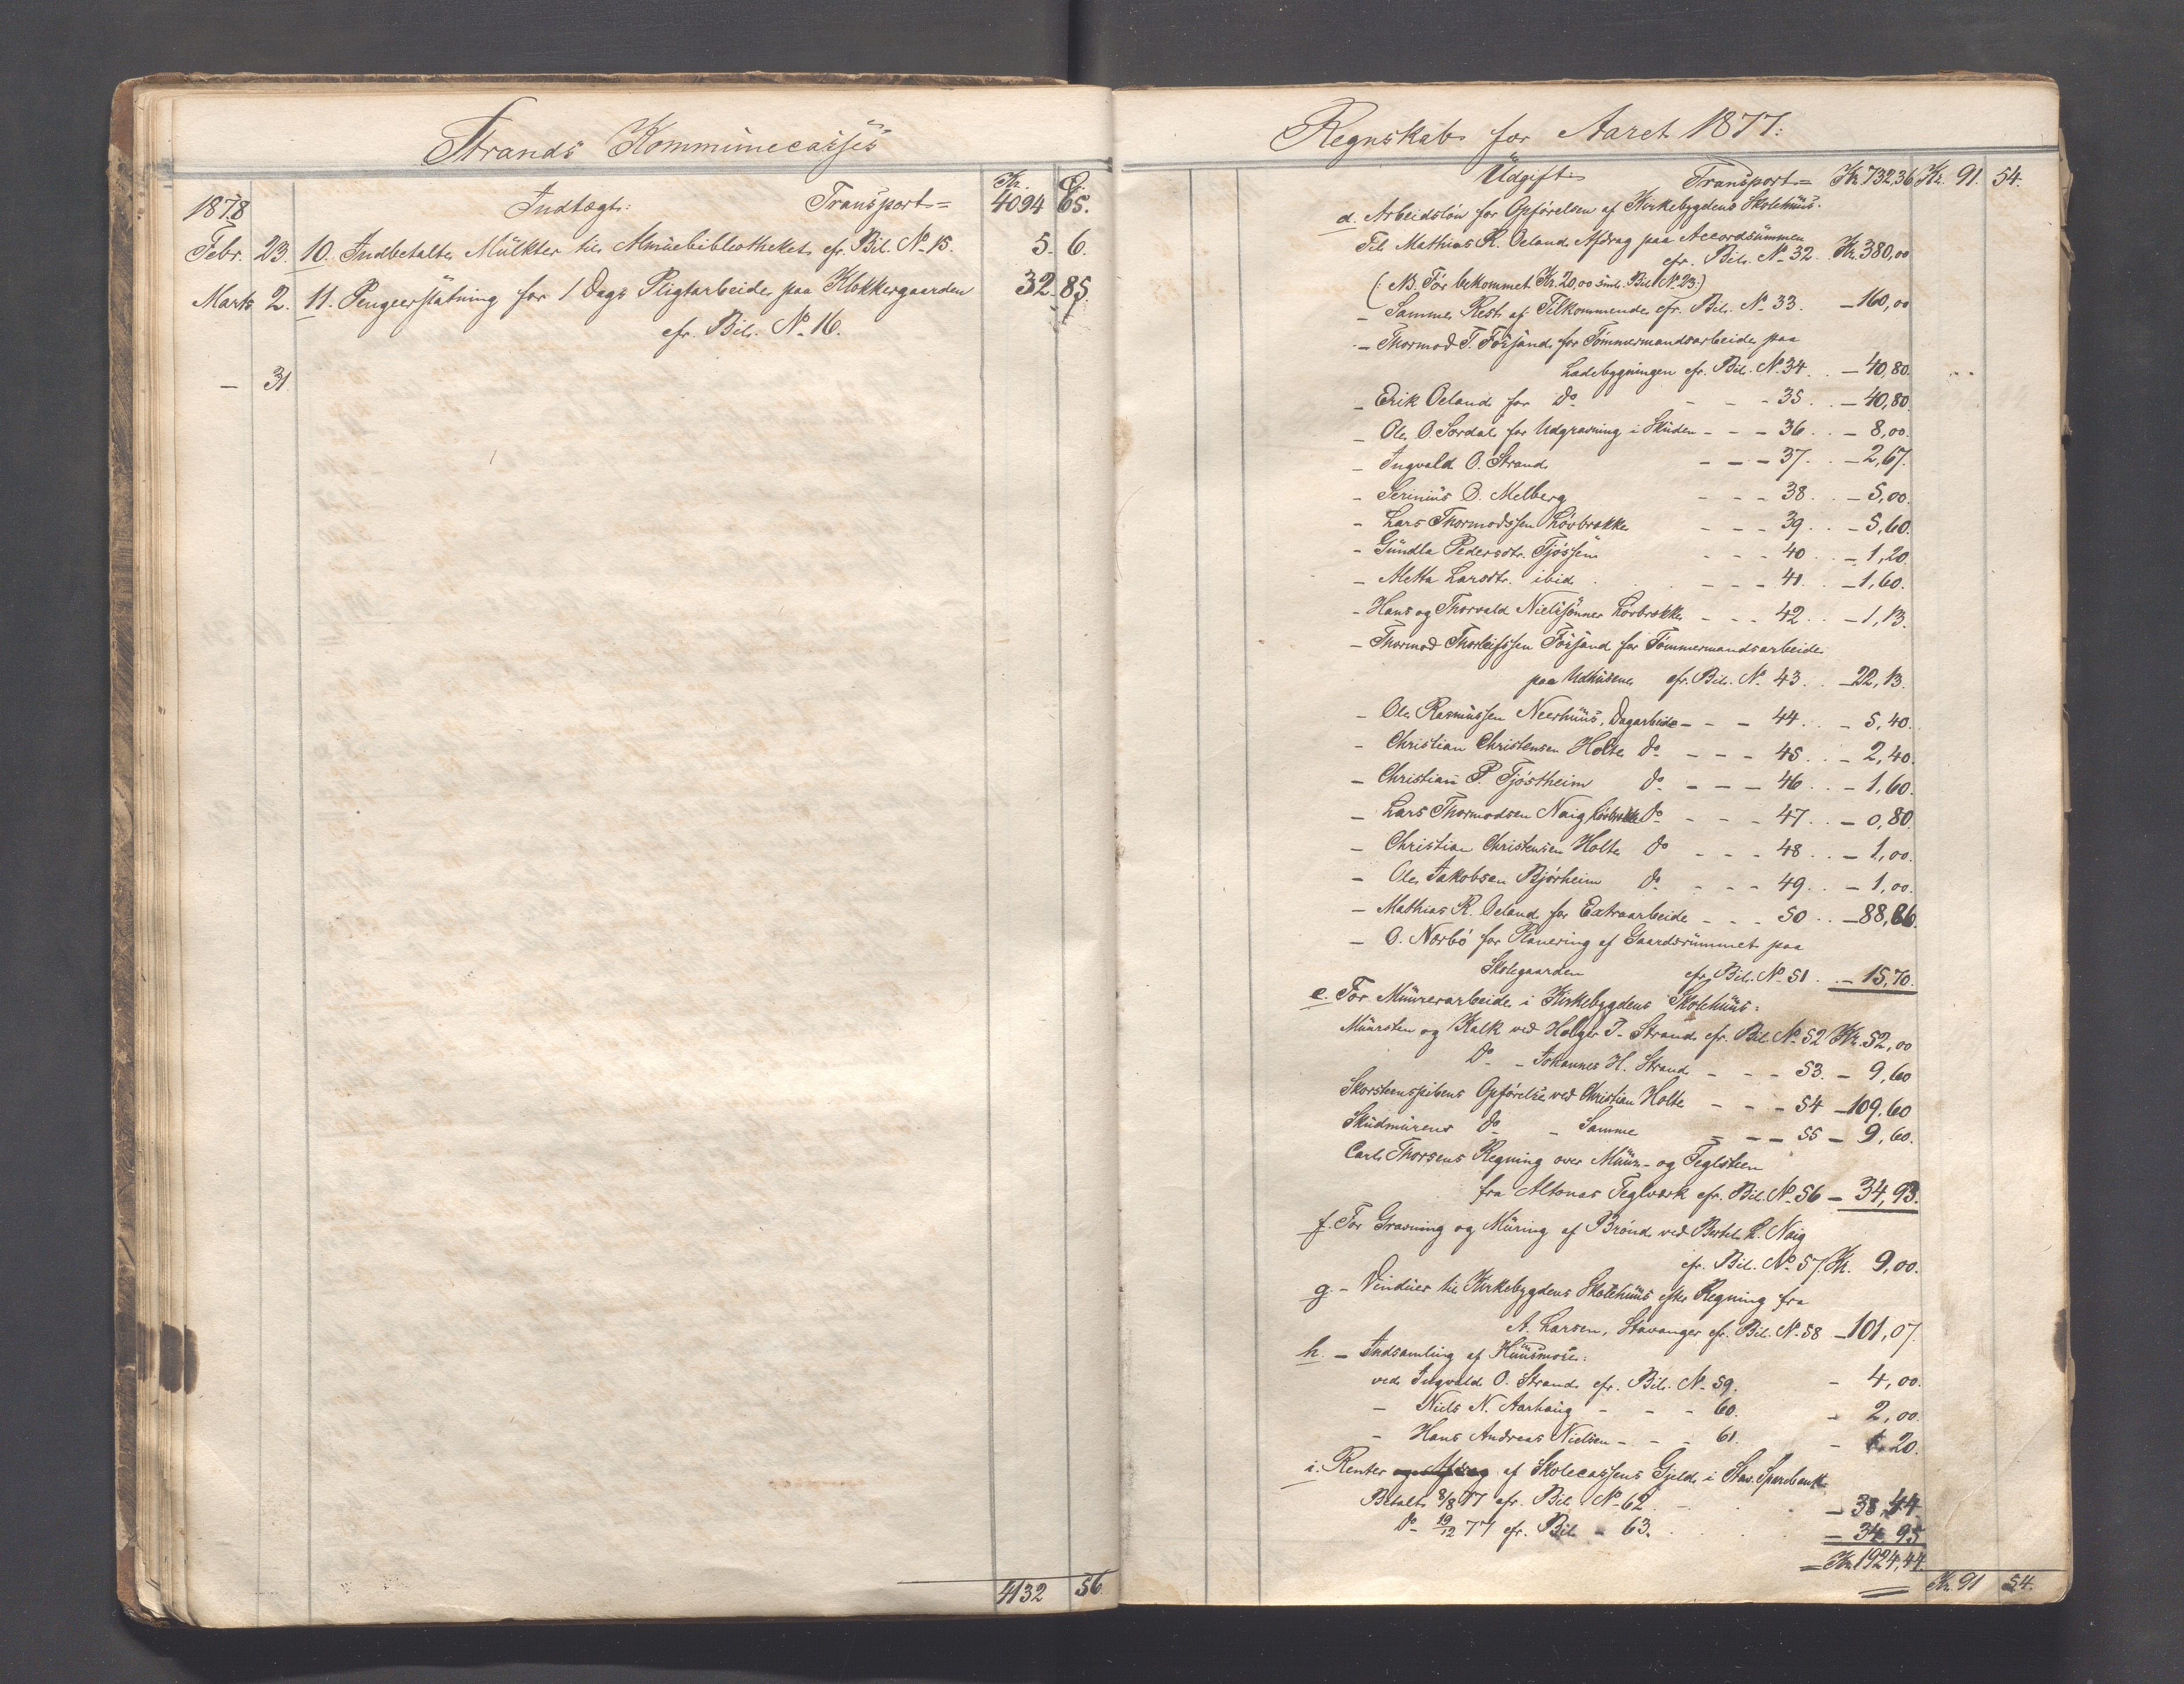 Strands Kommunecasses
Kr. Ø.
1878 Indtægt: Transport = 4094 65.
Febr. 23. 10. Indbetalte Mulkter til Almuebibliotheket cfr. Bil. No 15. 5. 6.
Marts 2. 11. Pengeerstatning for 1 Dags Pligtarbeide paa Klokkergaarden 32. 85.
cfr. Bil. No 16.
— 31
4132 56.
Regnskab for Aaret 1877:
Udgift Transport = Kr. 732,36 Kr. 91. 54.
d. Arbeidsløn for Opførelsen af Kirkebygdens Skolehuus.
Til Mathias R. Oeland Afdrag paa Accordsummen
cfr. Bil. No 32. Kr. 380,00
(: NB. Før bekommet Kr. 20,00 Bil. No 23:)
- Samme Rest af Tilkommende cfr. Bil. No 33. - 160,00
- Thormod T. Fossand for Tømmermandsarbeide paa
Ladebygningen cfr. Bil. No 34 . . - 40,80.
- Erik Oeland for Do - - - 35 . . - 40,80.
- Ole O. Sordal for Udgravning i Skuden - - - 36 . . - 8,00.
- Ingvald O. Strand - - - 37 . . - 2,67.
- Serinius B. Melberg - - - 38 . . - 5,00.
- Lars Thormodssen Løvbrekke - - - 39 . . - 5,60.
- Gundla Pedersdtr. Tjøssem - - - 40 . . - 1,20.
- Metta Larsdtr. ibid. - - - 41 . . - 1,60.
- Hans og Thorvald Nielssønner Løvbrekke - - - 42 . . - 1,13.
- Thormod Thorleifssen Fossand for Tømmermandsarbeide
paa Udhusene cfr. Bil. No 43 . . - 22,13.
- Ole Rasmussen Neerhuus, Dagarbeide - - - 44 . . - 5,40.
- Christian Christensen Holte Do - - - 45 . . - 2,40.
- Christian P. Tjøstheim Do - - - 46 . . - 1,60.
- Lars Thormodsen Naig Løvbrekke Do - - - 47 . . - 0,80.
- Christian Christensen Holte Do - - - 48 . . - 1,00.
- Ole Jakobsen Bjørheim Do - - - 49 . . - 1,00.
- Mathias R. Oeland for Extraarbeide - - - 50 . . - 88,86.
- O. Norbø for Planering af Gaardsrummet paa
Skolegaarden cfr. Bil. No 51 . . - 15,70.
e. For Muurerarbeide i Kirkebygdens Skolehuus:
Muursten og Kalk ved Holger T. Strand cfr. Bil. No 52 Kr. 52,00
Do - Johannes H. Strand - - - 53. - 9,60
Skorstenspibens Opførelse ved Christian Holte - - - 54 - 109,60
Skudmurens Do - Samme - - - 55 - 9,60.
Carl Thorsens Regning over Muur- og Teglsteen
fra Altonas Teglværk cfr. Bil. No 56 - 34,93.
f. For Gravning og Muring af Brønd ved Bertel L. Naig
cfr. Bil. No 57. Kr. 9,00.
g. - Vinduer til Kirkebygdens Skolehuus efter Regning fra
A. Larsen, Stavanger cfr. Bil. No 58 - 101,07.
h. - Indsamling af Huusmose:
ved Ingvald O. Strand cfr. Bil. No 59. - 4,00.
- Niels N. Aarhaug - - - 60. - 2,00.
- Hans Andreas Nielsen - - - 61. - 20.
i. Renter og Afdrag af Skolecassens Gjeld i Stav. Sparebank
Betalt 8/8 77 cfr. Bil. No 62 - 38,44.
Do 19/12 77 cfr. Bil. - 63. - 34 95
= Kr. 1924,44.
Kr. 91 54.